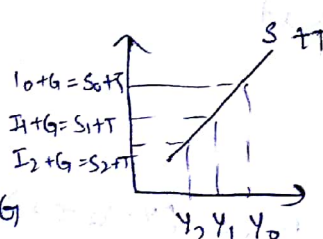 S + T
I₀ + G = S₀ + T
I₁ + G = S₁ + T
I₂ + G = S₂ + T
G
Y₂ Y₁ Y₀